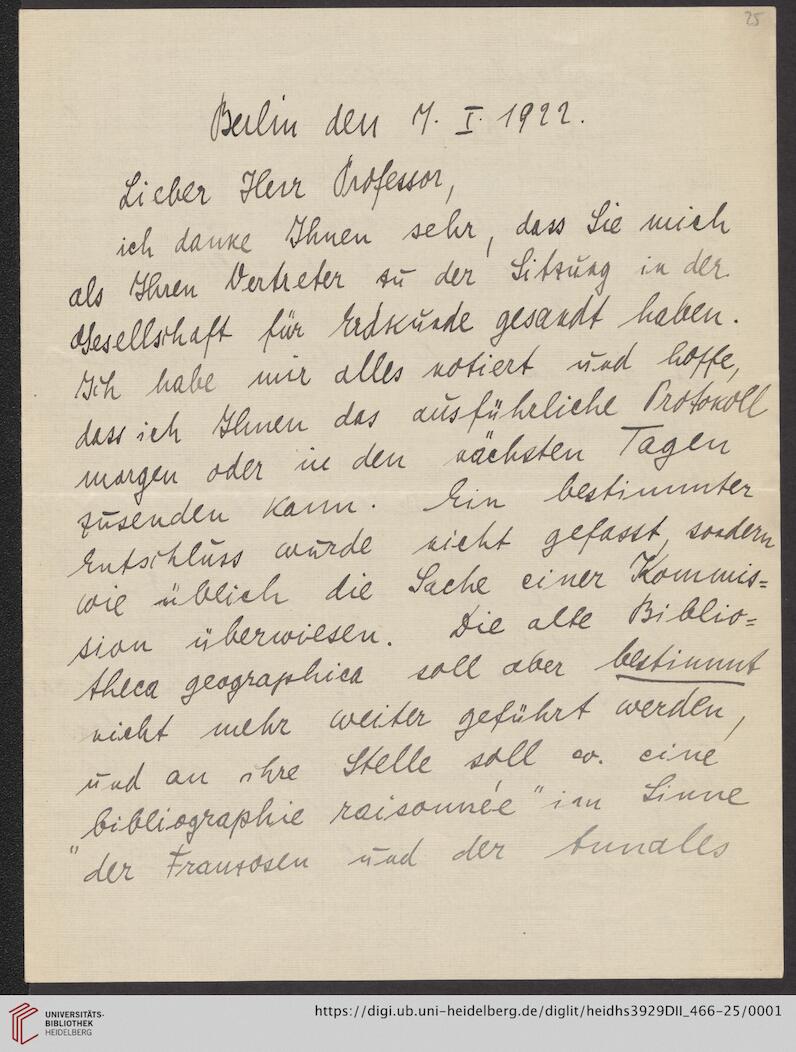 25
Berlin den 7. I. 1922.
Lieber Herr Professor,
ich danke Ihnen sehr, dass Sie mich
als Ihren Vertreter zu der Sitzung in der
Gesellschaft für Erdkunde gesandt haben.
Ich habe mir alles notiert und hoffe,
dass ich Ihnen das ausführliche Protokoll
morgen oder in den nächsten Tagen
zusenden kann. Ein bestimmter
Entschluss wurde nicht gefasst, sondern
wie üblich die Sache einer Kommis=
sion überwiesen. Die alte Biblio=
theca geographica soll aber bestimmt
nicht mehr weiter geführt werden,
und an ihre Stelle soll ev. eine
"bibliographie raisonnée" im Sinne
der Franzosen und der Annales
UNIVERSITÄTS-
BIBLIOTHEK
HEIDELBERG
https://digi.ub.uni-heidelberg.de/diglit/heidhs3929DII_466-25/0001